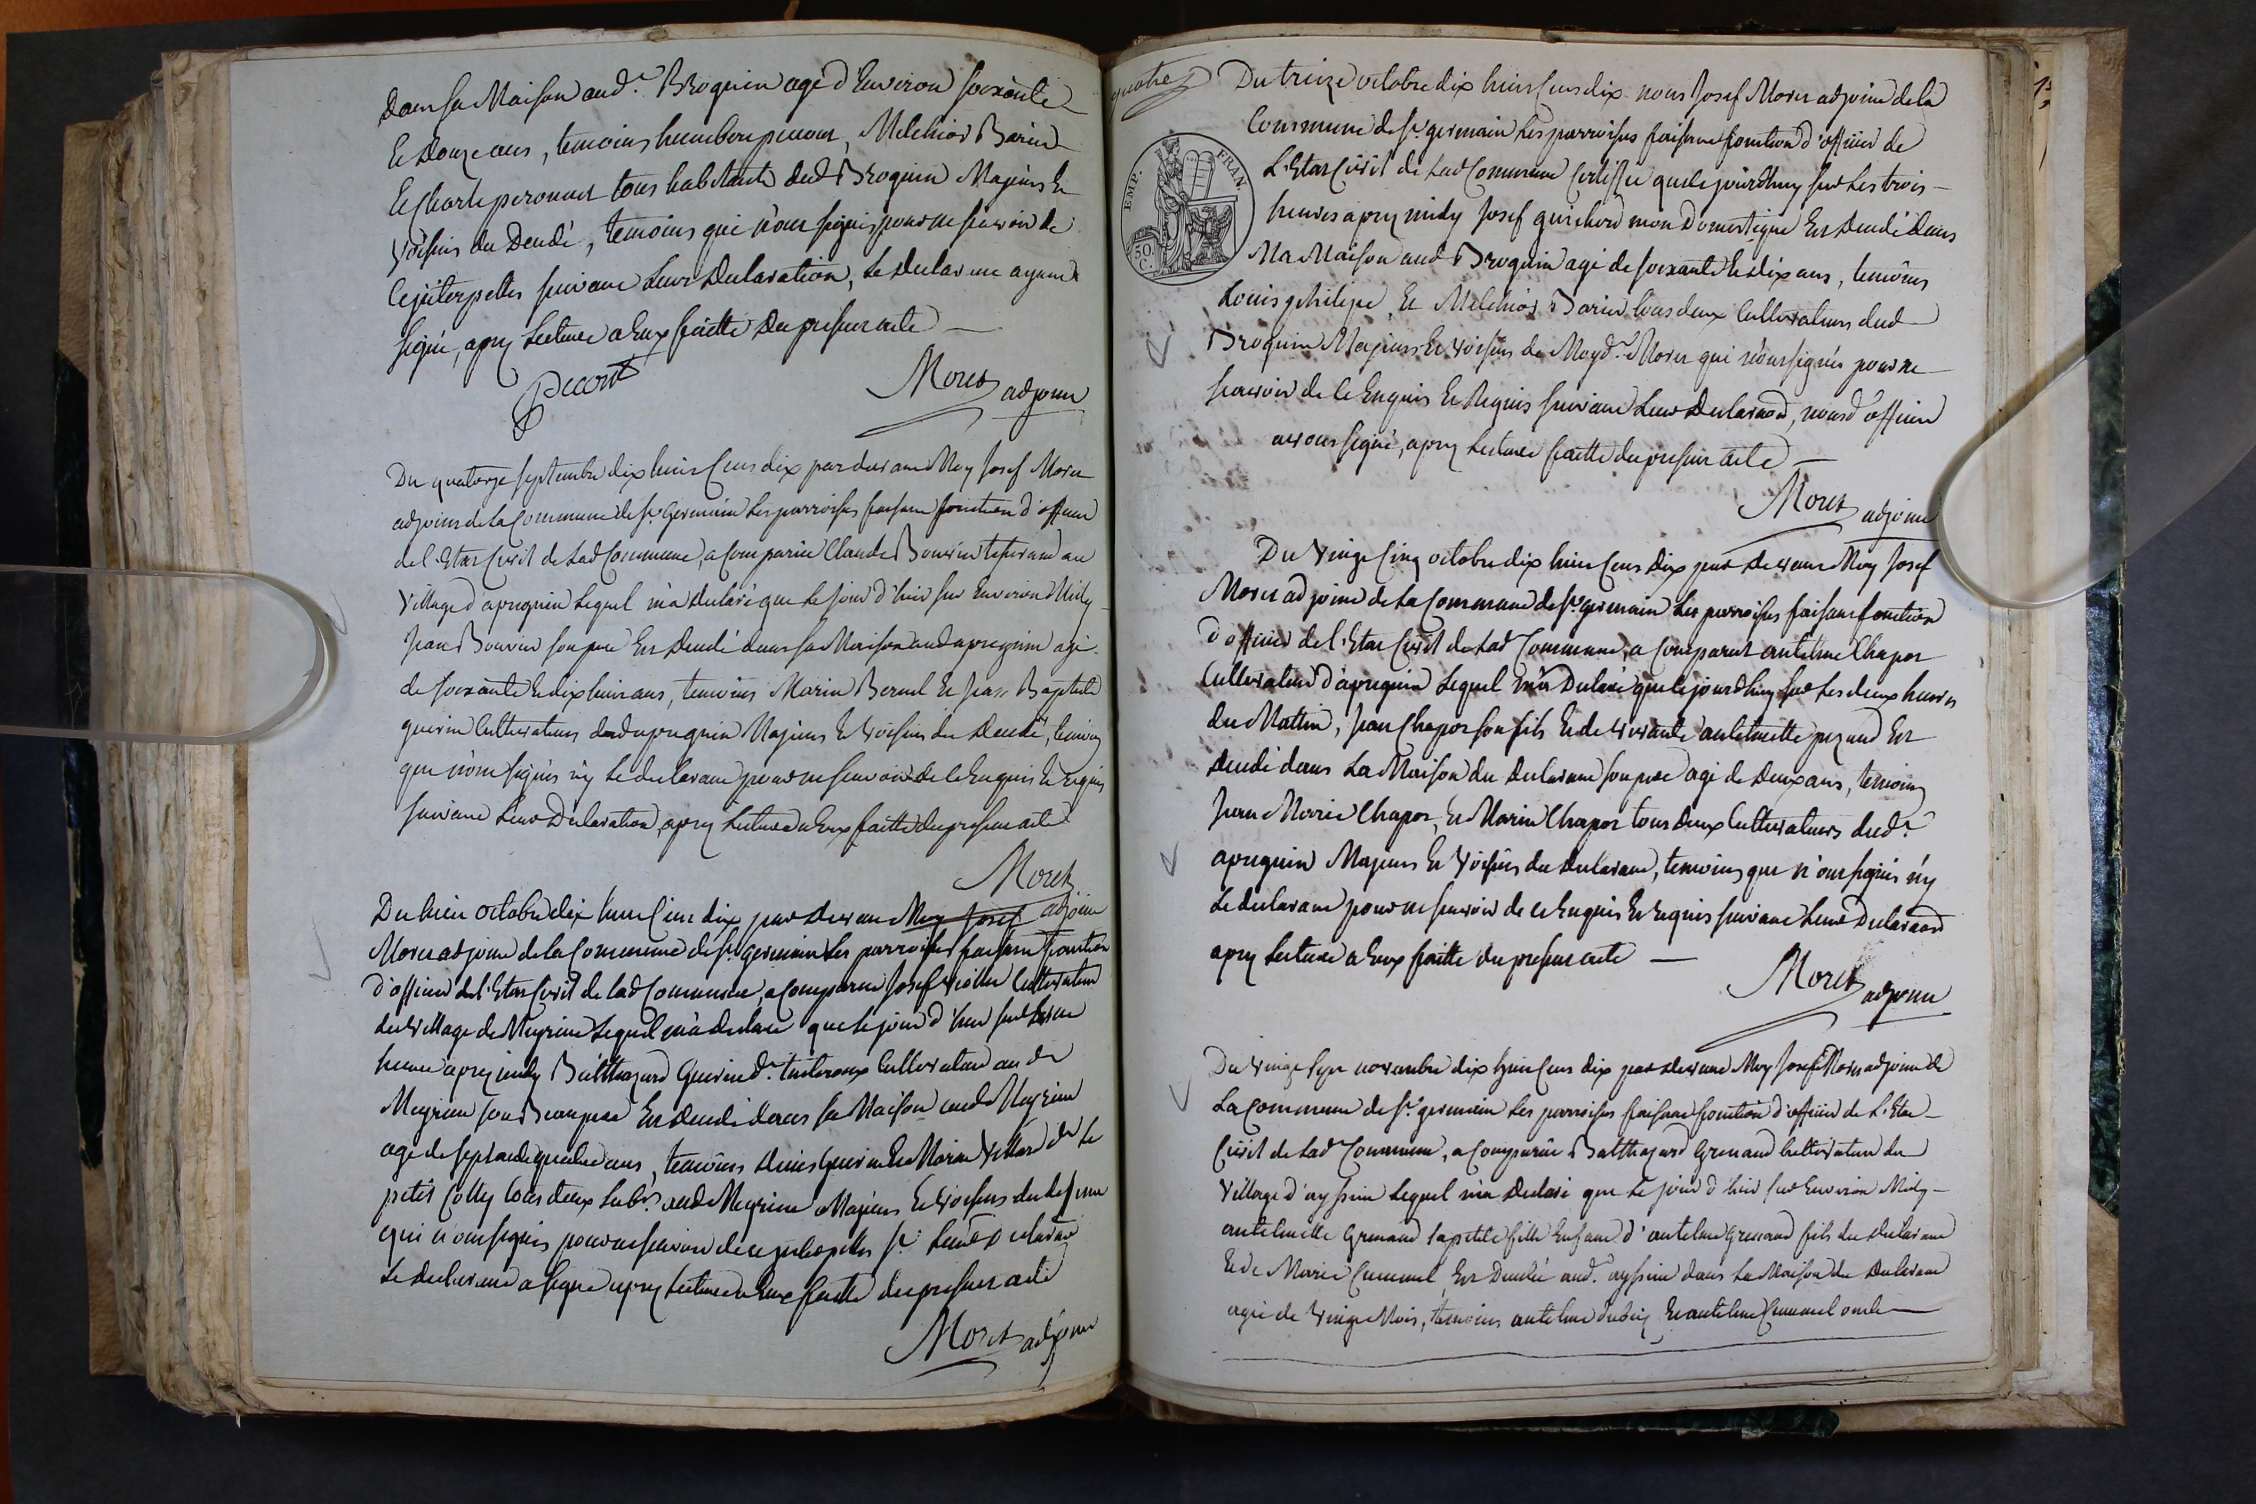 Dans sa Maison aud.t Brognin agé d'Environ soixante
Et Douze ans, temoins humbert pecour, Melchior Barin
Et Charle peronnet tous habitants dud Brognin Majeurs Et
Voisins du Decedé, temoins qui n'ont signés pour ne savoir de
Ce jnterpellés suivant Leur Declaration, Le declarant ayant
signé, apres Lecture a Eux faitte Du present acte —
Pecourt
Moret adjoint
Du quatorze septembre dix huit Cens dix par devant Moy Josef Moret
adjoint de La Commune de St. Germain Les parroisses faisant fonction d'officier
de l'Etat Civil de Lad Commune, a Comparu Claude Bouvier au
Village d'apregnin Lequel m'a declaré que Le jour d'hier sur Environ Midy
Jean Bouvier son pere Est Decedé dans sa Maison aud apregnin agé
de soixante Et dix huit ans, temoins Marin Bernel Et Jean Baptiste
guerin Cultivateurs dud apregnin Majeurs Et Voisins du Decedé, temoins
que n'ont signés n'y Le declarant pour ne savoir de Ce Enquis Et requis
suivant Leur Declaration, apres Lecture a Eux faitte du present acte
Moret
adjoint
Du huit octobre dix huit Cens dix par devant Moy Josef
Moret adjoint de la Commune de St. germain Les parroisses faisant fonction
d'officier de l'Etat Civil de lad Commune, a Comparu Josef Cultivateur
du Village de Meyrieu Lequel m'a declaré que Le jour d'hier sur
heure apres midy Balthazard Guerin d.t Cultivateur aud
Meyrieu son Beau pere Est Decedé dans sa Maison aud Meyrieu
agé de septante quatre ans, temoins Guerin Et Marin d.t Le
petit Colly tous deux aud Meyrieu Majeurs Et Voisins du
qui n'ont signés pour ne savoir de ce jnterpellés Leur
Le declarant a signé apres Lecture a Eux faitte du present acte
Moret adjoint
quatre
EMP. FRAN.
50. C.
Du treize octobre dix huit Cens dix nous Josef Moret adjoint de la
Commune de St. germain Les parroisses faisant fonction d'officier de
L'Etat Civil de Lad Commune Certiffie que Ce jourd'huy sur Les trois —
heures apres midy Josef guichert mon Domestique Est Decedé dans
Ma Maison aud Brognin agé de soixante Et dix ans, temoins
Louis philipe, Et Melchior Barin tous deux Cultivateurs dud
Brognin Majeurs Et Voisins de Moyd.t Moret qui n'ont signés pour ne
savoir de Ce Enquis Et Requis suivant Leur Declaraon, nousd officier
avons signé, apres Lecture faitte du present acte —
Moret adjoint
Du Vingt Cinq octobre dix huit Cens Dix par Devant Moy Josef
Moret adjoint de La Commune de St. germain Les parroisses faisant fonction
d'officier de l'Etat Civil de Lad Commune, a Comparut antelme Chapot
Cultivateur d'apregnin Lequel m'a Declaré que Ce jourd'huy sur Les deux heures
du Mattin, Jean Chapot son fils Et de Vivante antelmette Est
decedé dans La Maison du declarant son pere agé de Deux ans, temoins
Jean Marie Chapot, Et Marin Chapot tous Deux Cultivateurs dud.t
apregnin Majeurs Et Voisins du declarant, temoins que n'ont signés n'y
Le declarant pour ne savoir de ce Enquis Et requis suivant Leur Declaraon
apres Lecture a Eux faitte du present acte —
Moret adjoint
Du Vingt Sept novembre dix huit Cens dix par devant Moy Josef Moret adjoint de
La Commune de St. germain Les parroisses faisant fonction d'officier de L'Etat
Civil de Lad.t Commune, a Comparu Balthazard Grenand Cultivateur du
Village d'ayssieu Lequel m'a Declaré que Le jour d'hier sur Environ Midy —
antelmette Grenand sa petite fille Enfant d'antelme Grenand fils du declarant
Et de Marie Cummel, Est Decedée aud.t ayssieu dans La Maison du Declarant
agée de Vingt Mois, temoins antelme Et antelme Cummel oncle —